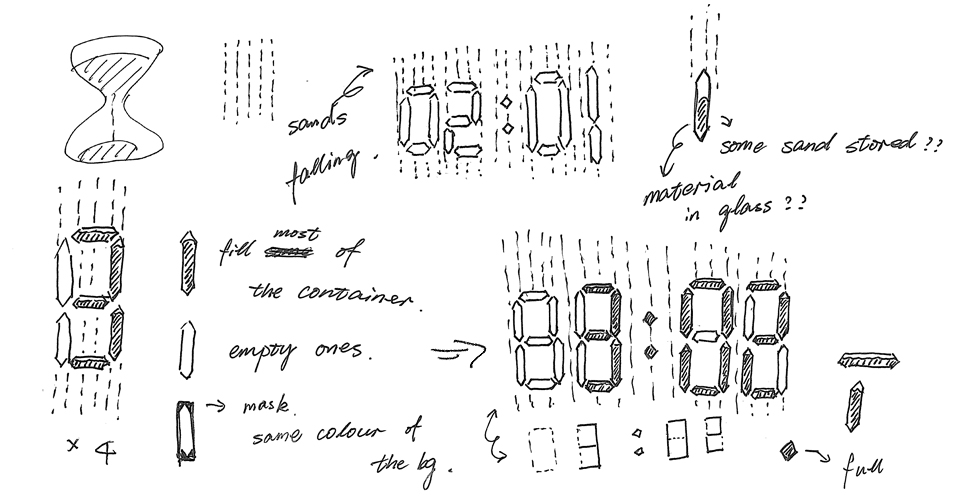 sands
falling.
02:01
some sand stored??
material
in glass??
fill most of
the container.
empty ones.
mask.
same colour of
the bg.
× 4
full